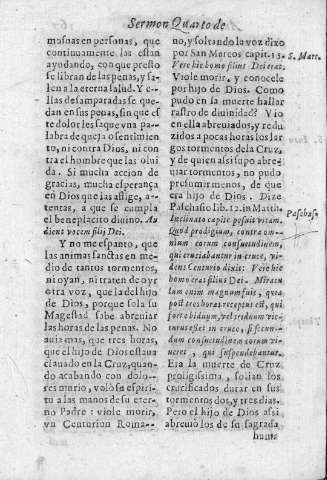 Sermon Quarto de
masuas en personas, que
continuamente las estan
ayudando, con que presto
se libran de las penas, y sa-
len a la eterna salud. Y e-
llas desamparadas se que-
dan en sus penas, sin que es
te dolor les saque vna pa-
labra de queja o sentimien
to, ni contra Dios, ni con
tra el hombre que las olui
da. Si mucha accion de
gracias, mucha esperança
en Dios que las aflige, a-
tentas, a que se cumpla
el beneplacito diuino. Au
dient vocem filij Dei.
Y no me espanto, que
las animas sanctas en me-
dio de tantos tormentos,
ni oyan, ni traten de oyr
otra voz, que la del hijo
de Dios, porque sola su
Magestad sabe abreuiar
las horas de las penas. No
auia mas, que tres horas,
que el hijo de Dios estaua
clauado en la Cruz, quan-
do acabando con dolo-
res murio, volò su espiri-
tu a las manos de su eter-
no Padre: viole morir,
vn Centurion Roma--
no, y soltando la voz dixo
por San Marcos capit. 15.
Vere hic homo filius Dei erat.
Viole morir, y conocele
por hijo de Dios. Como
pudo en la muerte hallar
rastro de diuinidad? Vio
en ella abreuiados, y redu
zidos a pocas horas los lar
gos tormentos de la Cruz,
y de quien assi supo abre-
uiar tormentos, no pudo
presumir menos, de que
era hijo de Dios. Dize
Paschasio lib. 12. in Matth.
Inclinato capite posuit vitam,
Quod prodigium, contra om-
nium eorum consuetudinem,
qui cruciabantur in cruce, vi-
dens Centurio dixit: Vere hic
homo erat filius Dei. Miracu
lum enim magnum fuit, quod
post tres horas receptus est, qui
forte biduum, vel triduum vic-
turus esset in cruce, si secun-
dum consuetudinem eorum vi-
ueret, qui suspendebantur.
Era la muerte de Cruz
proligissima, solian los
crucificados durar en sus
tormentos dos, y tres dias.
Pero el hijo de Dios assi
abreuiò los de su sagrada
huma
S. Marc.
Paschas.